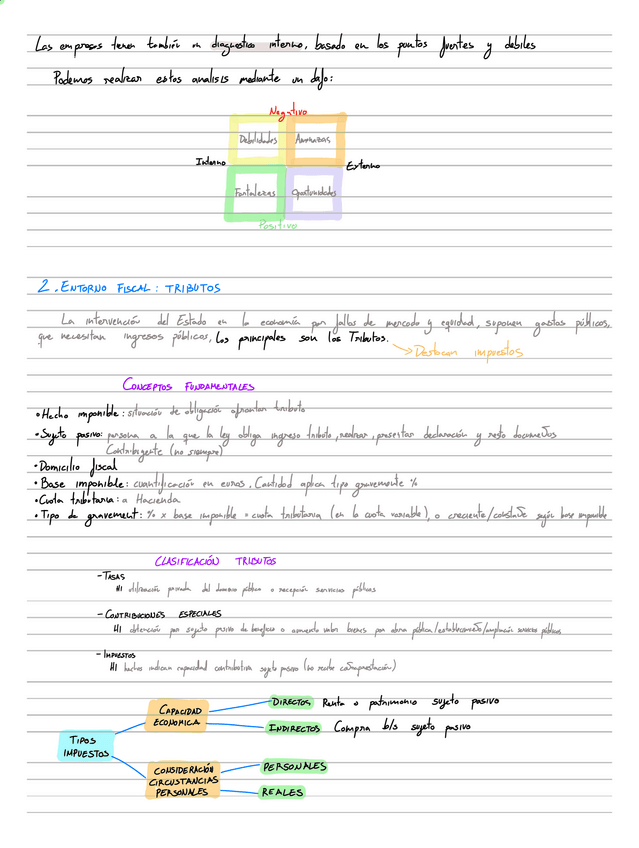 Las empresas tienen también un diagnostico interno, basado en los puntos fuertes y debiles
Podemos realizar estos analisis mediante un dafo:
Negativo
Debilidades Amenazas
Interno Externo
Fortalezas Oportunidades
Positivo
2. ENTORNO FISCAL: TRIBUTOS
La intervención del Estado en la economía por fallos de mercado y equidad, suponen gastos públicos,
que necesitan ingresos públicos, los principales son los Tributos.
Destacan impuestos
CONCEPTOS FUNDAMENTALES
• Hecho imponible: situación de obligación afrontar tributo
• Sujeto pasivo: persona a la que la ley obliga ingreso tributo, realizar, presentar declaración y resto documentos
Contribuyente (no siempre)
• Domicilio fiscal
• Base imponible: cuantificación en euros. Cantidad aplica tipo gravamente %
• Cuota tributaria: a Hacienda
• Tipo de gravament: % x base imponible = cuota tributaria (en la cuota variable), o creciente/constante según base imponible
CLASIFICACIÓN TRIBUTOS
- TASAS
HI utilización privada del dominio público o recepción servicios públicos
- CONTRIBUCIONES ESPECIALES
HI obtención por sujeto pasivo de beneficio o aumento valor bienes por obra pública/establecimiento/ampliación servicios públicos
- IMPUESTOS
HI hechos indican capacidad contributiva sujeto pasivo (no recibe contraprestación)
TIPOS IMPUESTOS
CAPACIDAD ECONOMICA
DIRECTOS Renta o patrimonio sujeto pasivo
INDIRECTOS Compra b/s sujeto pasivo
CONSIDERACIÓN CIRCUSTANCIAS PERSONALES
PERSONALES
REALES